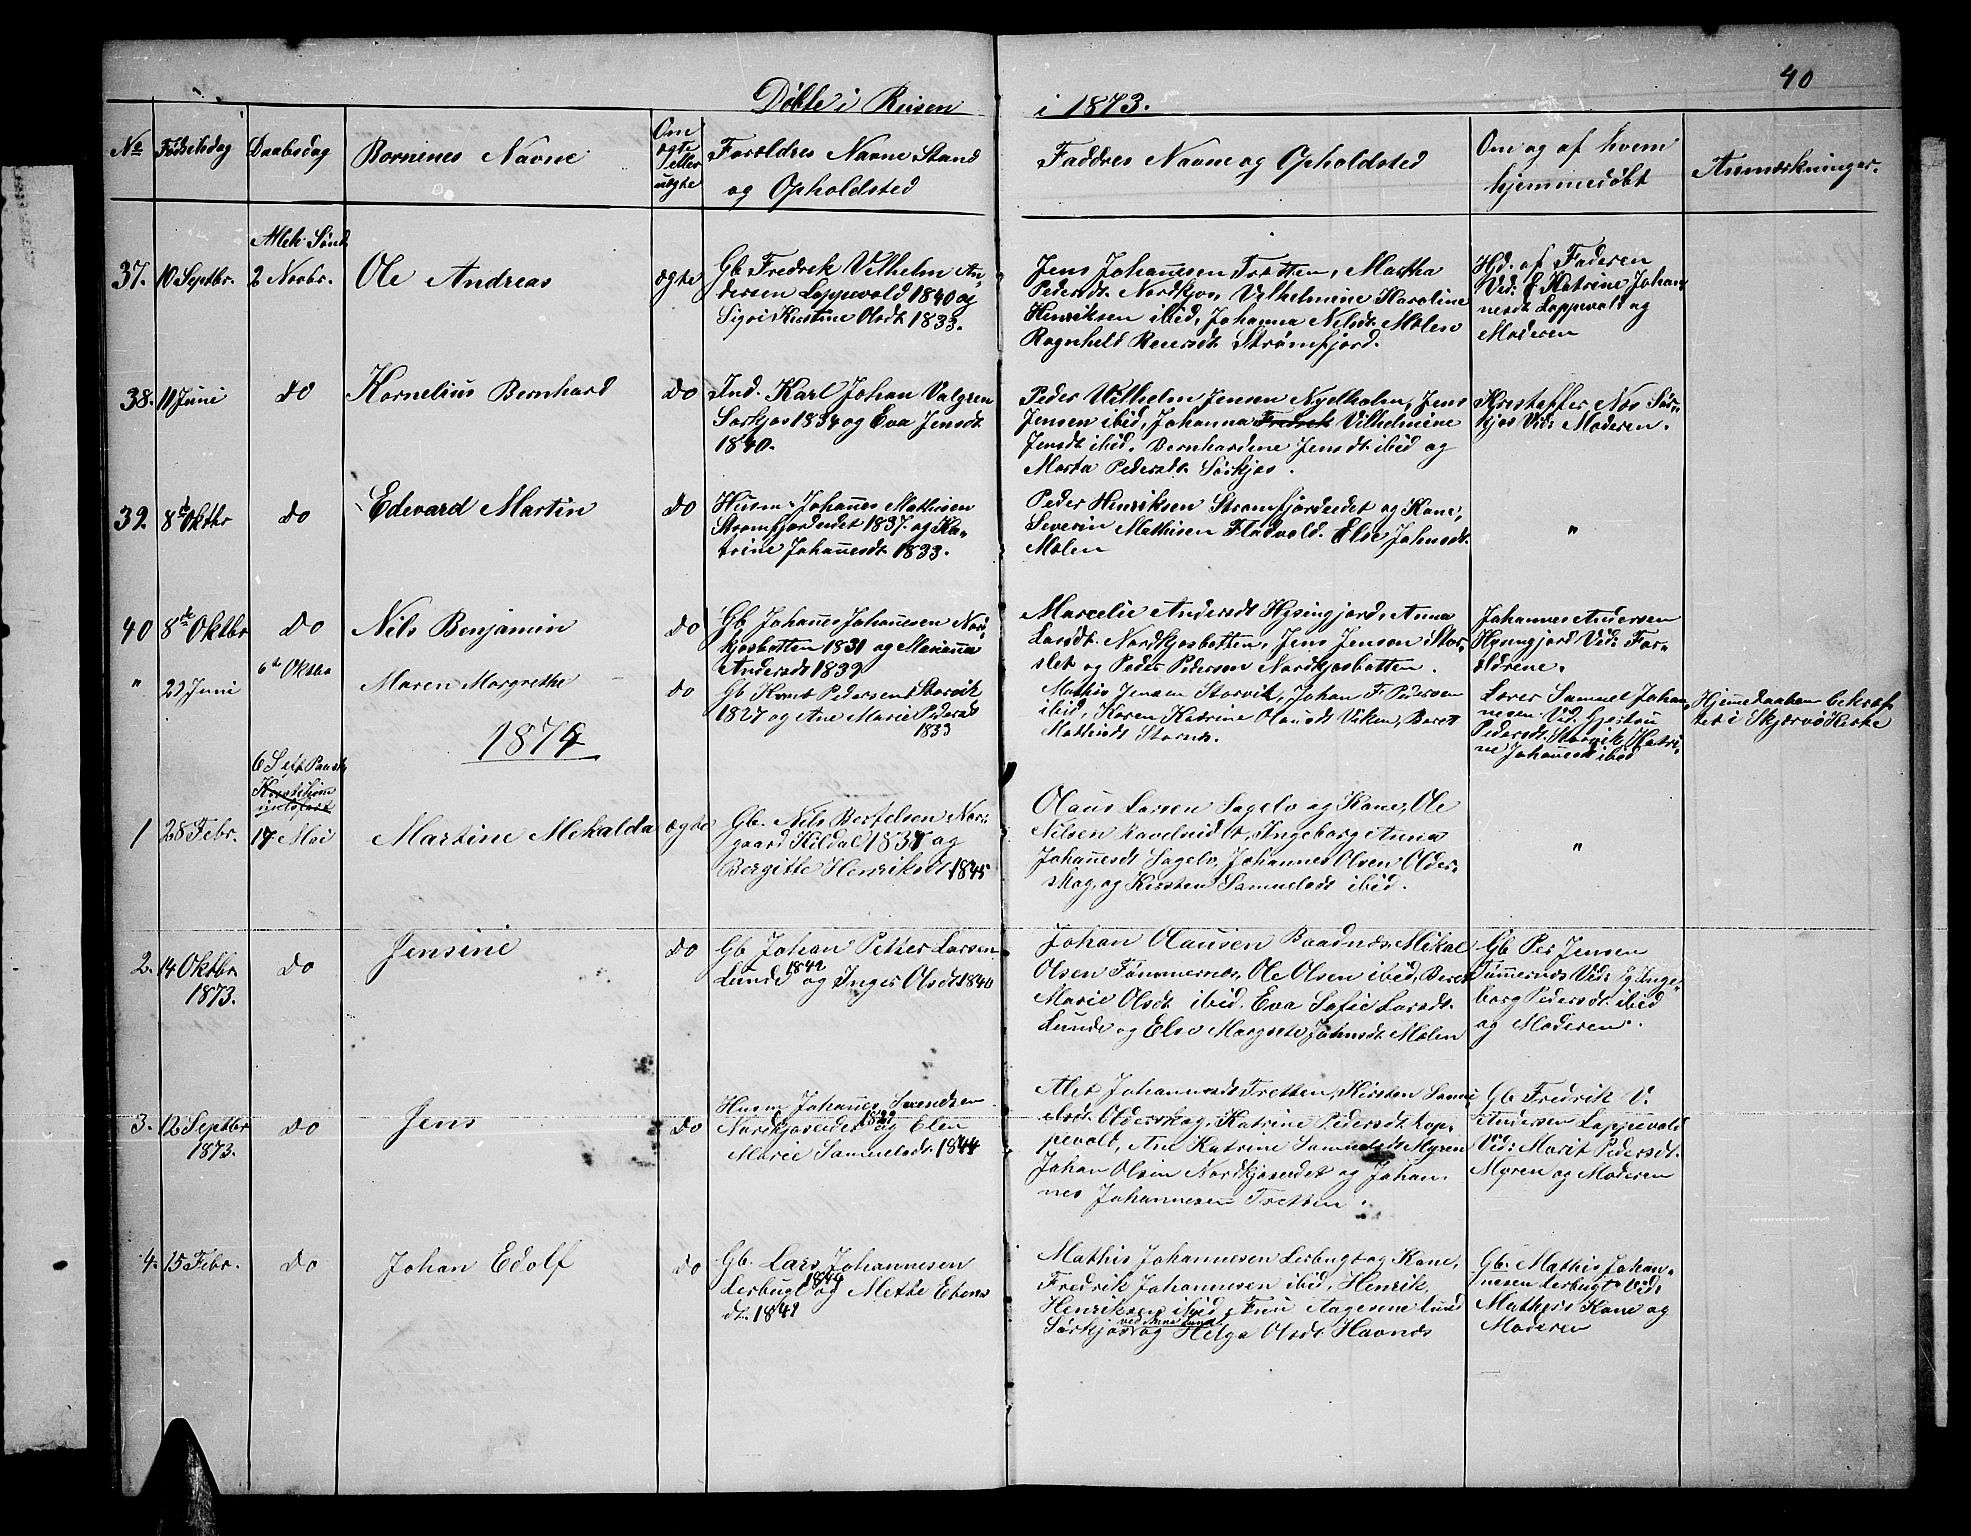 40
Døbte i Reisen i 1873.
No Fødselsdag Daabsdag Børnenes Navne Om ægte eller uægte Foreldres Navne Stand og Opholdsted Faddres Navne og Opholdsted Om og af hvem hjemmedøbt Anmærkninger.
Alleh. Sønd
37. 10 Septbr. 2 Novbr. Ole Andreas ægte
Gb Fredrik Vilhelm An-
dersen Loppevold 1840 og
Sigri Kirstine Olsdt 1833.
Jens Johannesen Tretten, Martha
Pedersdt. Nordkjos, Vilhelmine Karoline
Henriksen ibid, Johanna Nilsdt. Molen
Ragnheld Reiersdt Strømfjord.
Hjd. af Faderen
Vid: Katrine Johan
nesdt Loppevold og
Moderen
38. 11 Juni do Kornelius Bernhard do
Ind. Karl Johan Valgren
Sørkjos 1834 og Eva Jensdt
1840.
Peder Vilhelm Jensen Nyelholm, Jens
Jensen ibid, Johanna Fredrik Vilhelmine
Jensdt ibid. Bernhardine Jensdt ibid og
Marta Pedersdt Sørkjos.
Kristoffer Nos Sør-
kjos Vid: Moderen.
39. 8de Oktbr do Edevard Martin do
Husm. Johanes Mathisen
Strømfjordeidet 1837. og Ka-
trine Johanesdt 1833.
Peder Henriksen Strømfjordeidet og Kone,
Severin Mathisen Fladvold. Else Johnsdt.
Molen
"
40 8de Oktbr do Nils Benjamin do
Gb Johanes Johanesen Nor-
kjosbotten 1831 og Marianna
Andersdt 1833
Marcelie Andersdt Hysingjord, Anna
Larsdt. Nordkjosbotten, Jens Jensen Stor-
slet og Peder Pedersen Nordkjosbotten.
Johannes Andersen
Hysingjord Vid: For-
eldrene.
" 22 Juni 6te Oktbr Maren Margrethe do
Gb Pedersen Storvik
1827 og Ane Marie Pedersdt
1833
Mathis Jensen Storvik, Johan F. Pedersen
ibid, Karen Katrine Olausdt Viken, Beret
Mathisdt
Lærer Samuel Johan-
nesen Vid.
Pedersdt. Storvik, Katri-
ne Johanesdt ibid
Hjemedaaben bekræf
tet i Skjærvø Kirke
1874
6 S. eft Paaske
Kristi Him
melsfart
1 28 Febr. 17 Mai Martine Mekalda ægte
Gb. Nils Bertelsen Nor-
gaard Kildal 1837 og
Bergitte Henriksdt 1845
Olaus Larsen Sagelv og Kone, Ole
Nilsen, Ingeborg Anna
Johanesdt Sagelv, Johannes Olsen Older-
skog, og Kirsten Samuelsdt ibid.
"
2. 14 Oktbr 1873. do Jensine do
Gb Johan Petter Larsen
Lunde 1842 og Inger Olsdt 1840
Johan Olausen Baadnæs, Mikal
Olsen Tømmernes, Ole Olsen ibid, Beret
Marie Olsdt ibid, Eva Sofie Larsdt.
Lunde og Else Margrete Johnsdt Molen
Gb Per Jensen
Tømmernes Vid: Inge-
borg Pedersdt ibid
og Moderen.
3. 12 Septbr 1873. do Jens do
Husm Johanes Svendsen
Nordkjoseidet og Elen
Marie Samuelsdt. 1844
Alet Johannesdt Tretten, Kirsten Samu
elsdt. Olderskog, Katrine Pedersdt Lop-
pevold, Ane Katrine Samuelsdt Myren
Johan Olsen Nordkjoseidet og Johan-
nes Johannesen Tretten.
Gb Fredrik V.
Andersen Loppevold
Vid: Marit Pedersdt.
Myren og Moderen
4. 15 Febr. do Johan Edolf do
Gb. Lars Johannesen
Lerbugt og Mette Ebens
dt. 1841
Mathis Johannesen Lerbugt og Kone,
Fredrik Johannesen ibid, Henrik
Henriksen ibid, Frue Aagesine Lund
Sørkjos ved Anna Lund og Helga Olsdt Havnes
Gb. Mathis Johan-
nesen Lerbugt Vid:
Mathis's Kone og
Moderen